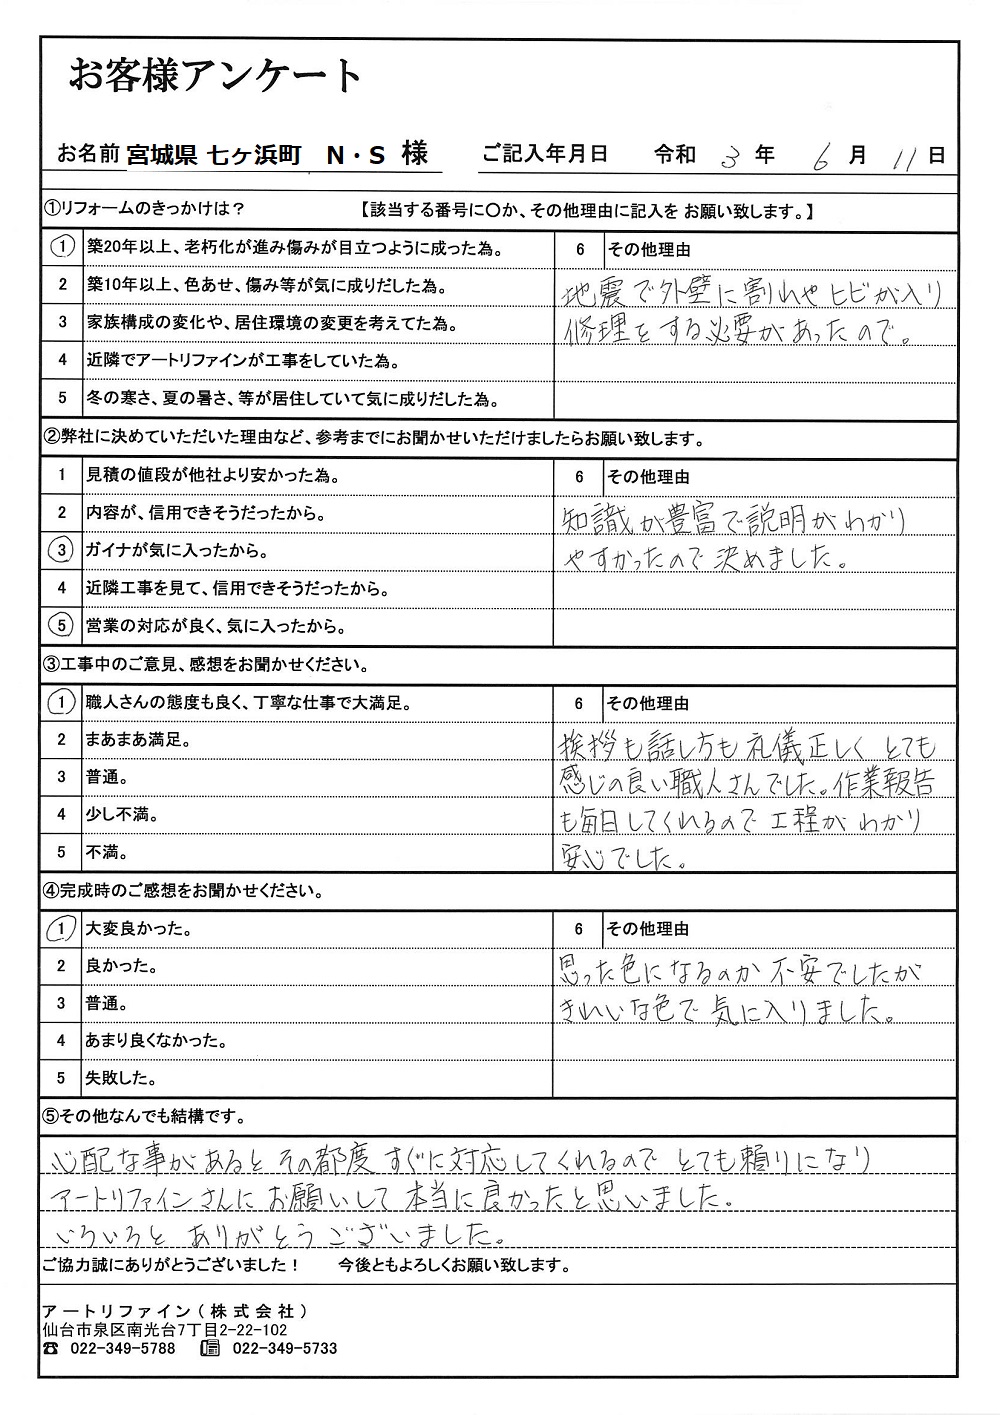 お客様アンケート
お名前 宮城県 七ヶ浜町 N・S 様 ご記入年月日 令和 3 年 6 月 11 日
①リフォームのきっかけは？ 【該当する番号に〇か、その他理由に記入を お願い致します。】
1 築20年以上、老朽化が進み傷みが目立つように成った為。 6 その他理由
2 築10年以上、色あせ、傷み等が気に成りだした為。 地震で外壁に割れやヒビが入り
3 家族構成の変化や、居住環境の変更を考えてた為。 修理をする必要があったので。
4 近隣でアートリファインが工事をしていた為。
5 冬の寒さ、夏の暑さ、等が居住していて気に成りだした為。
②弊社に決めていただいた理由など、参考までにお聞かせいただけましたらお願い致します。
1 見積の値段が他社より安かった為。 6 その他理由
2 内容が、信用できそうだったから。 知識が豊富で説明がわかり
3 ガイナが気に入ったから。 やすかったので決めました。
4 近隣工事を見て、信用できそうだったから。
5 営業の対応が良く、気に入ったから。
③工事中のご意見、感想をお聞かせください。
1 職人さんの態度も良く、丁寧な仕事で大満足。 6 その他理由
2 まあまあ満足。 挨拶も話し方も礼儀正しくとても
3 普通。 感じの良い職人さんでした。作業報告
4 少し不満。 も毎日してくれるので工程がわかり
5 不満。 安心でした。
④完成時のご感想をお聞かせください。
1 大変良かった。 6 その他理由
2 良かった。 思った色になるのか不安でしたが
3 普通。 きれいな色で気に入りました。
4 あまり良くなかった。
5 失敗した。
⑤その他なんでも結構です。
心配な事があるとその都度すぐに対応してくれるのでとても頼りになり
アートリファインさんにお願いして本当に良かったと思いました。
いろいろとありがとうございました。
ご協力誠にありがとうございました！ 今後ともよろしくお願い致します。
アートリファイン（株式会社）
仙台市泉区南光台7丁目2-22-102
☎ 022-349-5788 📠 022-349-5733